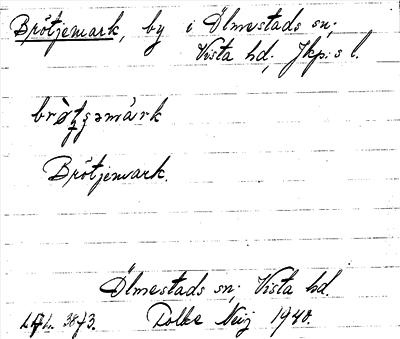 Brötjemark, by i Ölmestads sn;
Vista hd; Jkp:s l.
brø̀tʒəmàrk
Brötjemark.
Ölmestads sn; Vista hd.
1940.